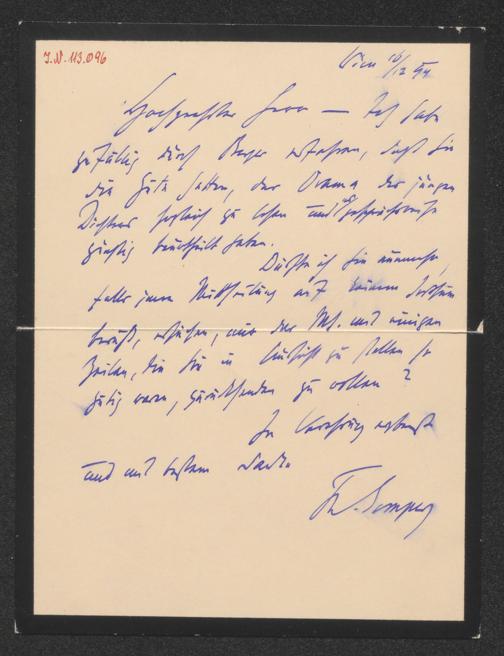 I.N. 113.096
Wien 16/12 94
Hochgeehrter Herr — Ich habe
zufällig durch Berger erfahren, daß Sie
die Güte hatten, das Drama des jungen
Dichters sogleich zu lesen und
günstig beurtheilt haben.
Dürfte ich Sie nunmehr,
falls jene Mittheilung auf keinem Irrthum
beruht, ersuchen, mir das Ms. mit einigen
Zeilen, die Sie in Aussicht zu stellen so
gütig waren, zurücksenden zu wollen?
In Verehrung ergebenst
und mit bestem Dank.
Th. Gomperz